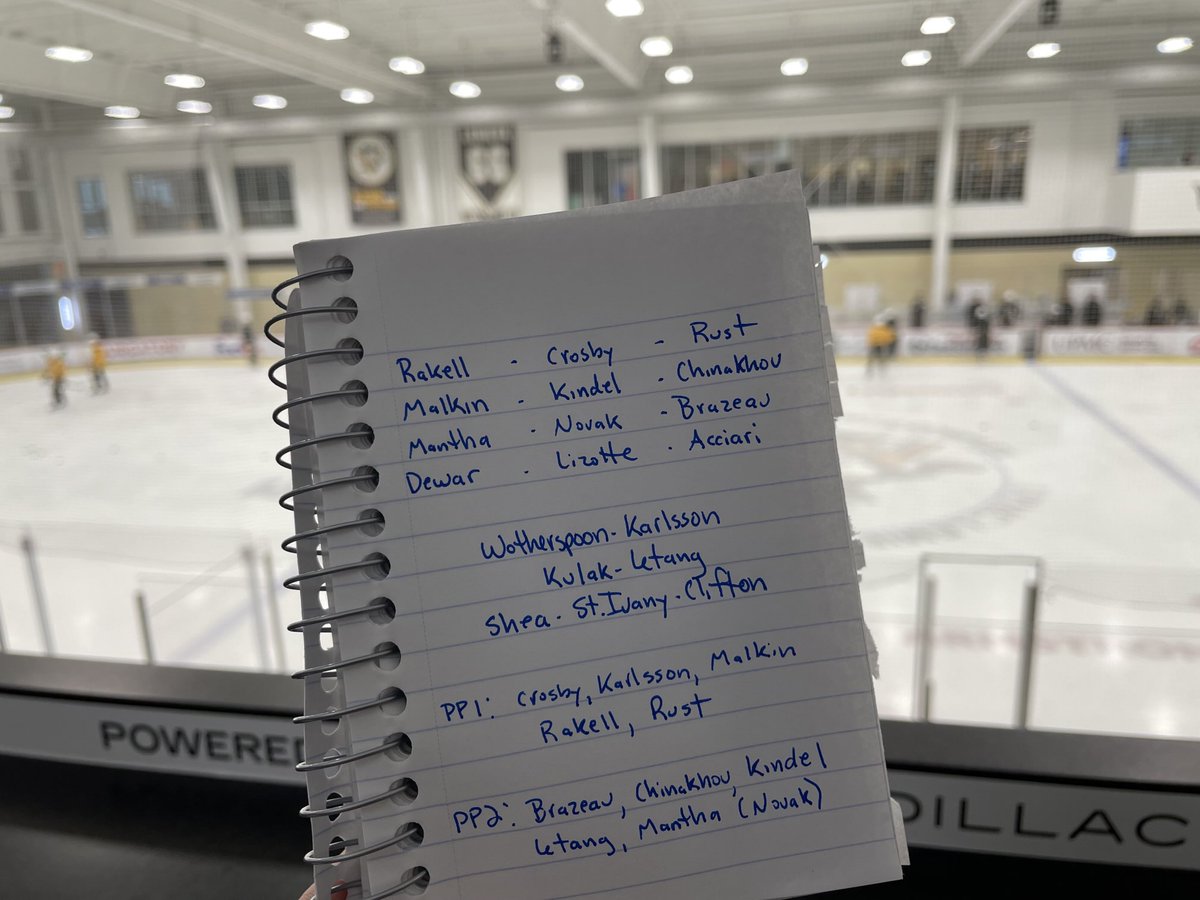 Rakell - Crosby - Rust
Malkin - Kindel - Chinakhov
Mantha - Novak - Brazeau
Dewar - Lizotte - Acciari
Wotherspoon - Karlsson
Kulak - Letang
Shea - St. Ivany - Clifton
PP1: Crosby, Karlsson, Malkin
Rakell, Rust
PP2: Brazeau, Chinakhov, Kindel
Letang, Mantha (Novak)
POWERED
DILLAC